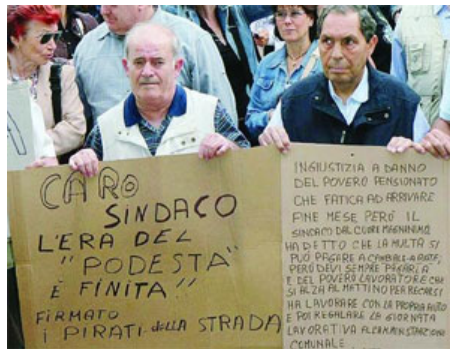 CARO
SINDACO
L'ERA DEL
"PODESTA"
È FINITA!!
FIRMATO
I PIRATI DELLA STRADA
INGIUSTIZIA A DANNO
DEL POVERO PENSIONATO
CHE FATICA AD ARRIVARE
FINE MESE PERÒ IL
SINDACO DAL CUORE MAGNANIMO
HA DETTO CHE LA MULTA SI
PUÒ PAGARE A RATE,
PERÒ DEVI SEMPRE PAGARLA
E DEL POVERO LAVORATORE CHE
SI ALZA AL MATTINO PER RECARSI
HA LAVORARE CON LA PROPRIA AUTO
E POI REGALARE LA GIORNATA
LAVORATIVA
COMUNALE